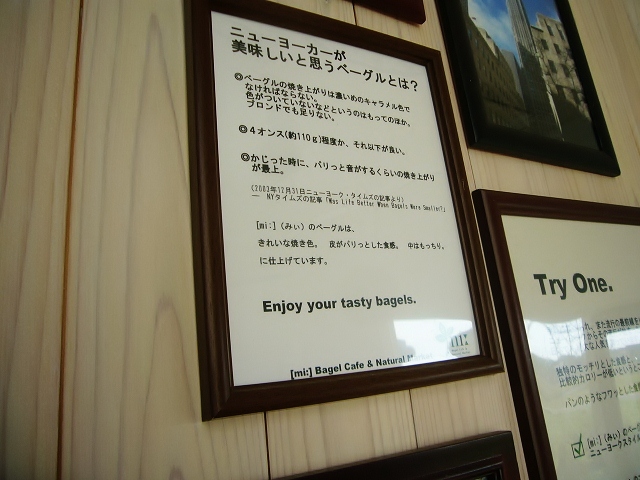 ニューヨーカーが
美味しいと思うベーグルとは?
◎ベーグルの焼き上がりは濃いめのキャラメル色で
なければならない。
色がついていないなどというのはもってのほか。
ブロンドでも足りない。
◎4オンス(約110g)程度か、それ以下が良い。
◎かじった時に、パリっと音がするくらいの焼き上がり
が最上。
(2003年12月31日ニューヨーク・タイムズの記事より)
― NYタイムズの記事「Was Life Better When Bagels Were Smaller?」
[mi:](みぃ)のベーグルは、
きれいな焼き色。 皮がパリっとした食感。 中はもっちり。
に仕上げています。
Enjoy your tasty bagels.
[mi:] Bagel Cafe & Natural
Try One.
また流行の最前線
独特のモッチリとした食感と
比較的カロリーが低いというと
パンのようなフワっとした食
[mi:](みぃ)のベー
ニューヨークスタイル